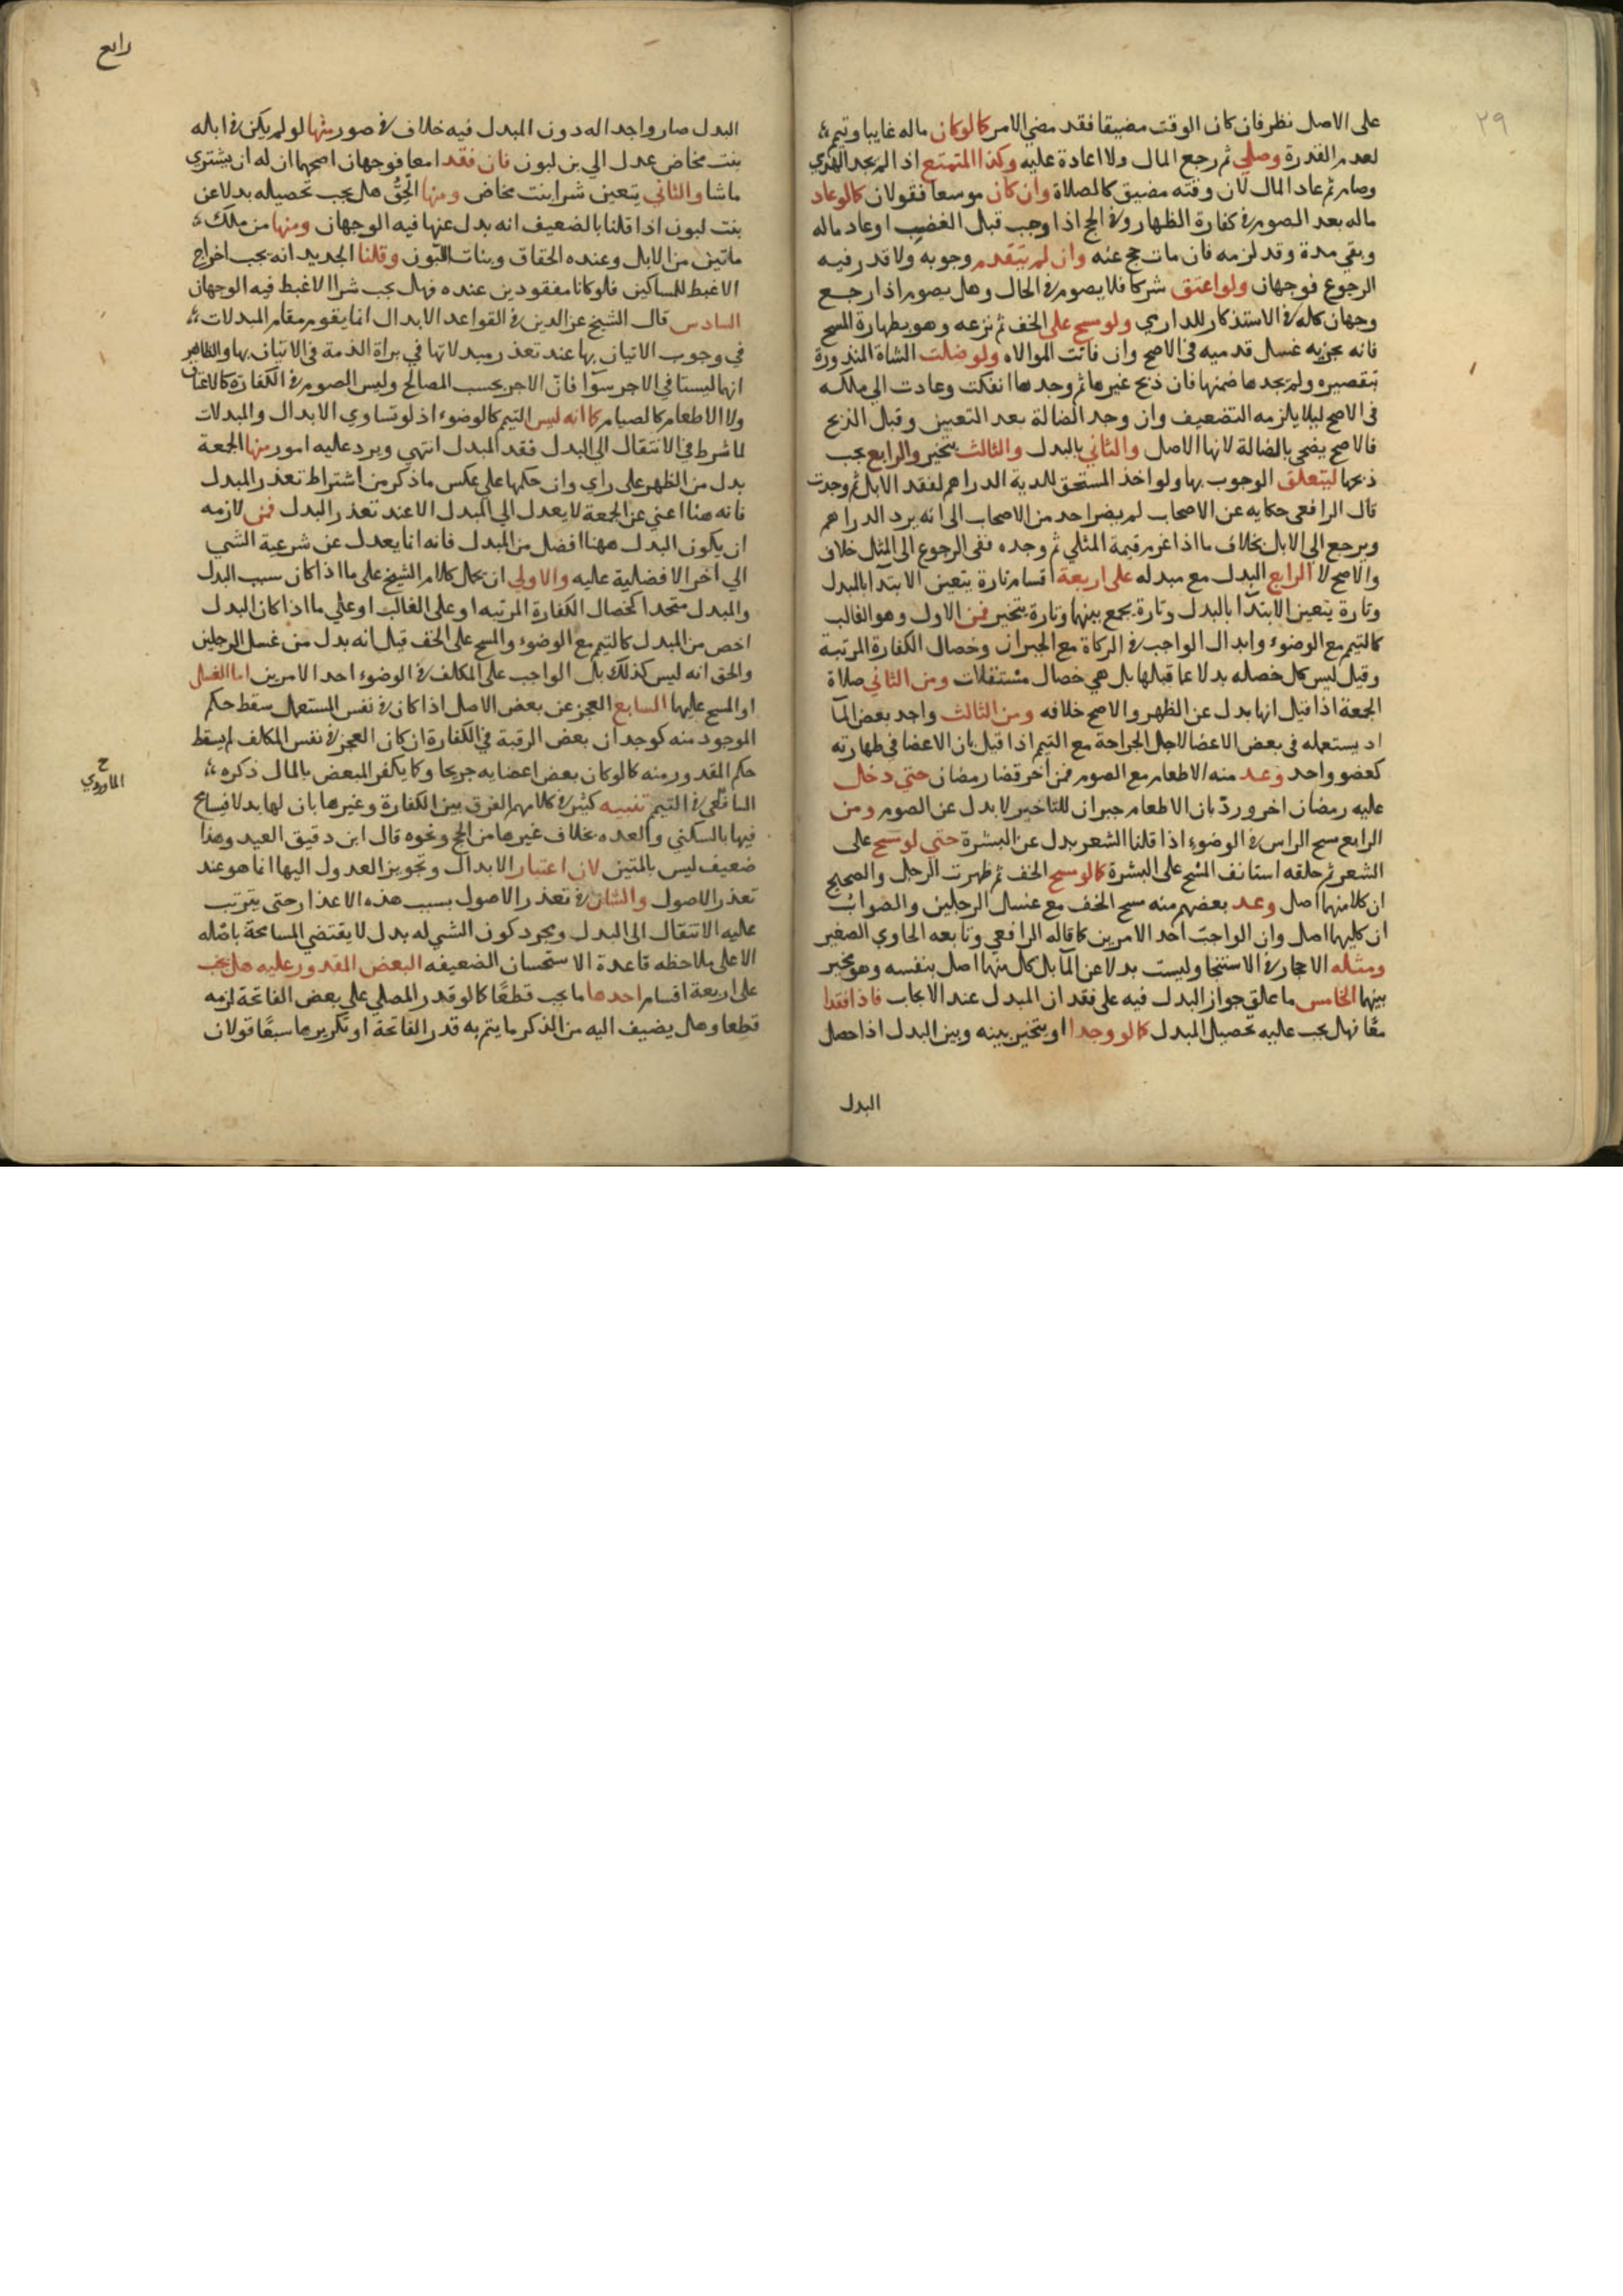 ٢٩
على الاصل نظر فان كان الوقت مضيقا فقد مضي الامر كالوكان ماله غايبا وتيمم
لعدم القدرة وصلي ثم رجع المال ولا اعادة عليه وكذا المتمتع اذا لم يجد الهدي
وصام ثم عاد المال لان وقته مضيق كالصلاة وان كان موسعا فقولان كالوعاد
ماله بعد الصوم في كفارة الظهار وفي الحج اذا وجب قبل الغضب اوعاد ماله
وبقي مدة وقد لزمه فان مات حج عنه وان لم يتقدم وجوبه ولا قدر فيه
الرجوع فوجهان ولواعتق شركا فلا يصوم في الحال وهل يصوم اذا رجع
وجهان كله في الاستذكار للداري ولو مسح على الخف ثم نزعه وهو بطهارة المسح
فانه يجزيه غسل قدميه في الاصح وان فاتت الموالاه ولو ضلت الشاة المنذورة
بتقصيره ولم يجدها ضمنها فان ذبح غيرها ثم وجدها انفكت وعادت الي ملكه
في الاصح ليلا يلزمه التضعيف وان وجد الضالة بعد التعيين وقبل الذبح
فالاصح يضحي بالضالة لانها الاصل والثاني بالبدل والثالث يتخير والرابع يجب
ذبحها ليتعلق الوجوب بها ولو اخذ المستحق للدية الدراهم لفقد الابل ثم وجدت
قال الرافعي حكايه عن الاصحاب لم يصر احد من الاصحاب الى انه يرد الدراهم
ويرجع الي الابل بخلاف ما اذا غرم قيمة المثلي ثم وجده ففي الرجوع الى المثل خلاف
والاصح لا الرابع البدل مع مبدله على اربعة اقسام تارة يتعين الابتدا بالمبدل
وتارة يتعين الابتدا بالبدل وتارة يجمع بينهما وتارة يتخير فمن الاول وهو الغالب
كالتيمم مع الوضوء وابدال الواجب في الزكاة مع الجبران وخصال الكفارة المرتبة
وقيل ليس كل خصله بدلا عما قبلها بل هي خصال مستقلات ومن الثاني صلاة
الجمعة اذا قيل انها بدل عن الظهر والاصح خلافه ومن الثالث واجد بعض المآ
اد يستعمله في بعض الاعضا لاجل الجراحة مع التيمم اذا قيل بان الاعضا في طهارته
كعضو واحد وعد منه الاطعام مع الصوم فمن اخر قضا رمضان حتي دخل
عليه رمضان اخر ورد بان الاطعام جبران للتاخير لا بدل عن الصوم ومن
الرابع مسح الراس في الوضوء اذا قلنا الشعر بدل عن البشرة حتي لو مسح على
الشعر ثم حلقه استانف المسح على البشرة كالو مسح الخف ثم ظهرت الرجل والصحيح
ان كلا منهما اصل وعد بعضهم منه مسح الخف مع غسل الرجلين والصواب
ان كليهما اصل وان الواجب احد الامرين كما قاله الرافعي وتابعه الحاوي الصغير
ومثله الاحجار في الاستنجا وليست بدلا عن المآ بل كل منهما اصل بنفسه وهو مخير
بينهما الخامس ما علق جواز البدل فيه على فقد ان المبدل عند الايجاب فاذا فقدا
معا فهل يجب عليه تحصيل المبدل كالو وجدا او يتخير بينه وبين البدل اذا حصل
البدل
رابع
البدل صار واجدا له دون المبدل فيه خلاف في صور منها لو لم يكن في ابله
بنت مخاض عدل الي بن لبون فان فقدا معا فوجهان اصحهما ان له ان يشتري
ما شا والثاني يتعين شرا بنت مخاض ومنها الحق هل يجب تحصيله بدلا عن
بنت لبون اذا قلنا بالضعيف انه بدل عنها فيه الوجهان ومنها من ملك
ماتين من الابل وعنده الحقاق وبنات اللبون وقلنا الجديد انه يجب اخراج
الاغبط للمساكين فلو كانا مفقودين عنده فهل يجب شرا الاغبط فيه الوجهان
السادس قال الشيخ عز الدين في القواعد الابدال انما يقوم مقام المبدلات
في وجوب الاتيان بها عند تعذر مبدلاتها في براة الذمة في الاتيان بها والظاهر
انهما ليستا في الاجر سوآ فان الاجر بحسب المصالح وليس الصوم في الكفارة كالاعتاق
ولا الاطعام كالصيام كما انه ليس التيمم كالوضوء اذ لو تساوي الابدال والمبدلات
لما شرط في الانتقال الي البدل فقد المبدل انتهي ويرد عليه امور منها الجمعة
بدل من الظهر على راي وان حكمها على عكس ما ذكر من اشتراط تعذر المبدل
فانه هنا اعني عن الجمعة لا يعدل الي المبدل الا عند تعذر البدل فمن لازمه
ان يكون البدل ههنا افضل من المبدل فانه انما يعدل عن شرعية الشي
الي اخر الافضلية عليه والاولي ان يحمل كلام الشيخ على ما اذا كان سبب البدل
والمبدل متحدا كخصال الكفارة المرتبه او على الغالب او علي ما اذا كان البدل
اخص من المبدل كالتيمم مع الوضوء والمسح على الخف قيل انه بدل من غسل الرجلين
والحق انه ليس كذلك بل الواجب على المكلف في الوضوء احد الامرين اما الغسل
او المسح عليهما السابع العجز عن بعض الاصل اذا كان في نفس المستعمل سقط حكم
الموجود منه كوجدان بعض الرقبة في الكفارة ان كان العجز في نفس المكلف لم يسقط
حكم المقدور منه كالو كان بعض اعضايه جريحا وكما يكفر المبعض بالمال ذكره
ح الماوردي
الشافعي في التيمم تنبيه كثر في كلامهم الفرق بين الكفارة وغيرها بان لها بدلا فيسامح
فيها بالسكني والعده بخلاف غيرها من الحج ونحوه قال ابن دقيق العيد وهذا
ضعيف ليس بالمتين لان اعتبار الابدال وتجويز العدول اليها انما هو عند
تعذر الاصول والشان في تعذر الاصول بسبب هذه الاعذار حتى يترتب
عليه الانتقال الى البدل ومجرد كون الشي له بدل لا يقتضي المسامحة باصله
الا على ملاحظه قاعدة الاستحسان الضعيفه البعض المقدور عليه هل يجب
على اربعة اقسام احدها ما يجب قطعا كالو قدر المصلي على بعض الفاتحة لزمه
قطعا وهل يضيف اليه من الذكر ما يتم به قدر الفاتحة او تكريرها سبعا قولان